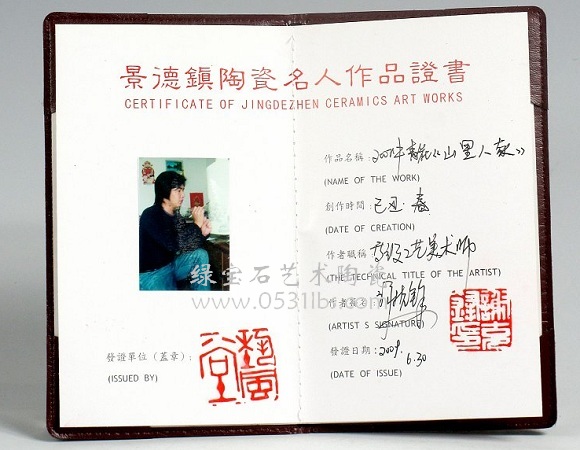 景德鎮陶瓷名人作品證書
CERTIFICATE OF JINGDEZHEN CERAMICS ART WORKS
發證單位(蓋章):
(ISSUED BY)
作品名稱:《山里人家》
(NAME OF THE WORK)
創作時間:己丑·春
(DATE OF CREATION)
作者職稱:高级工艺美术师
(THE TECHNICAL TITLE OF THE ARTIST)
作者簽名:
(ARTIST S SIGNATURE)
發證日期:2009.6.30
(DATE OF ISSUE)
绿宝石艺术陶瓷